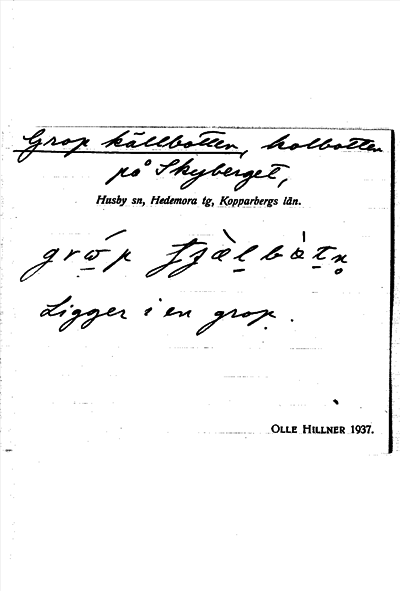 Grop källbotten, kolbotten
på Skyberget,
Husby sn, Hedemora tg, Kopparbergs län.
Ligger i en grop.
OLLE HILLNER 1937.